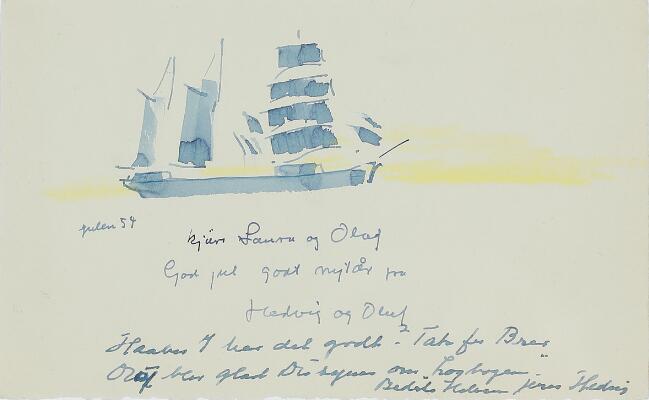 julen 54
kjære Laura og Olaf
God jul godt nytår fra
Hedvig og Oluf
Haaber I har det godt? Tak for Brev
Oluf blev glad Du synes om "Logbogen"
Bedste Hilsen Jeres Hedvig